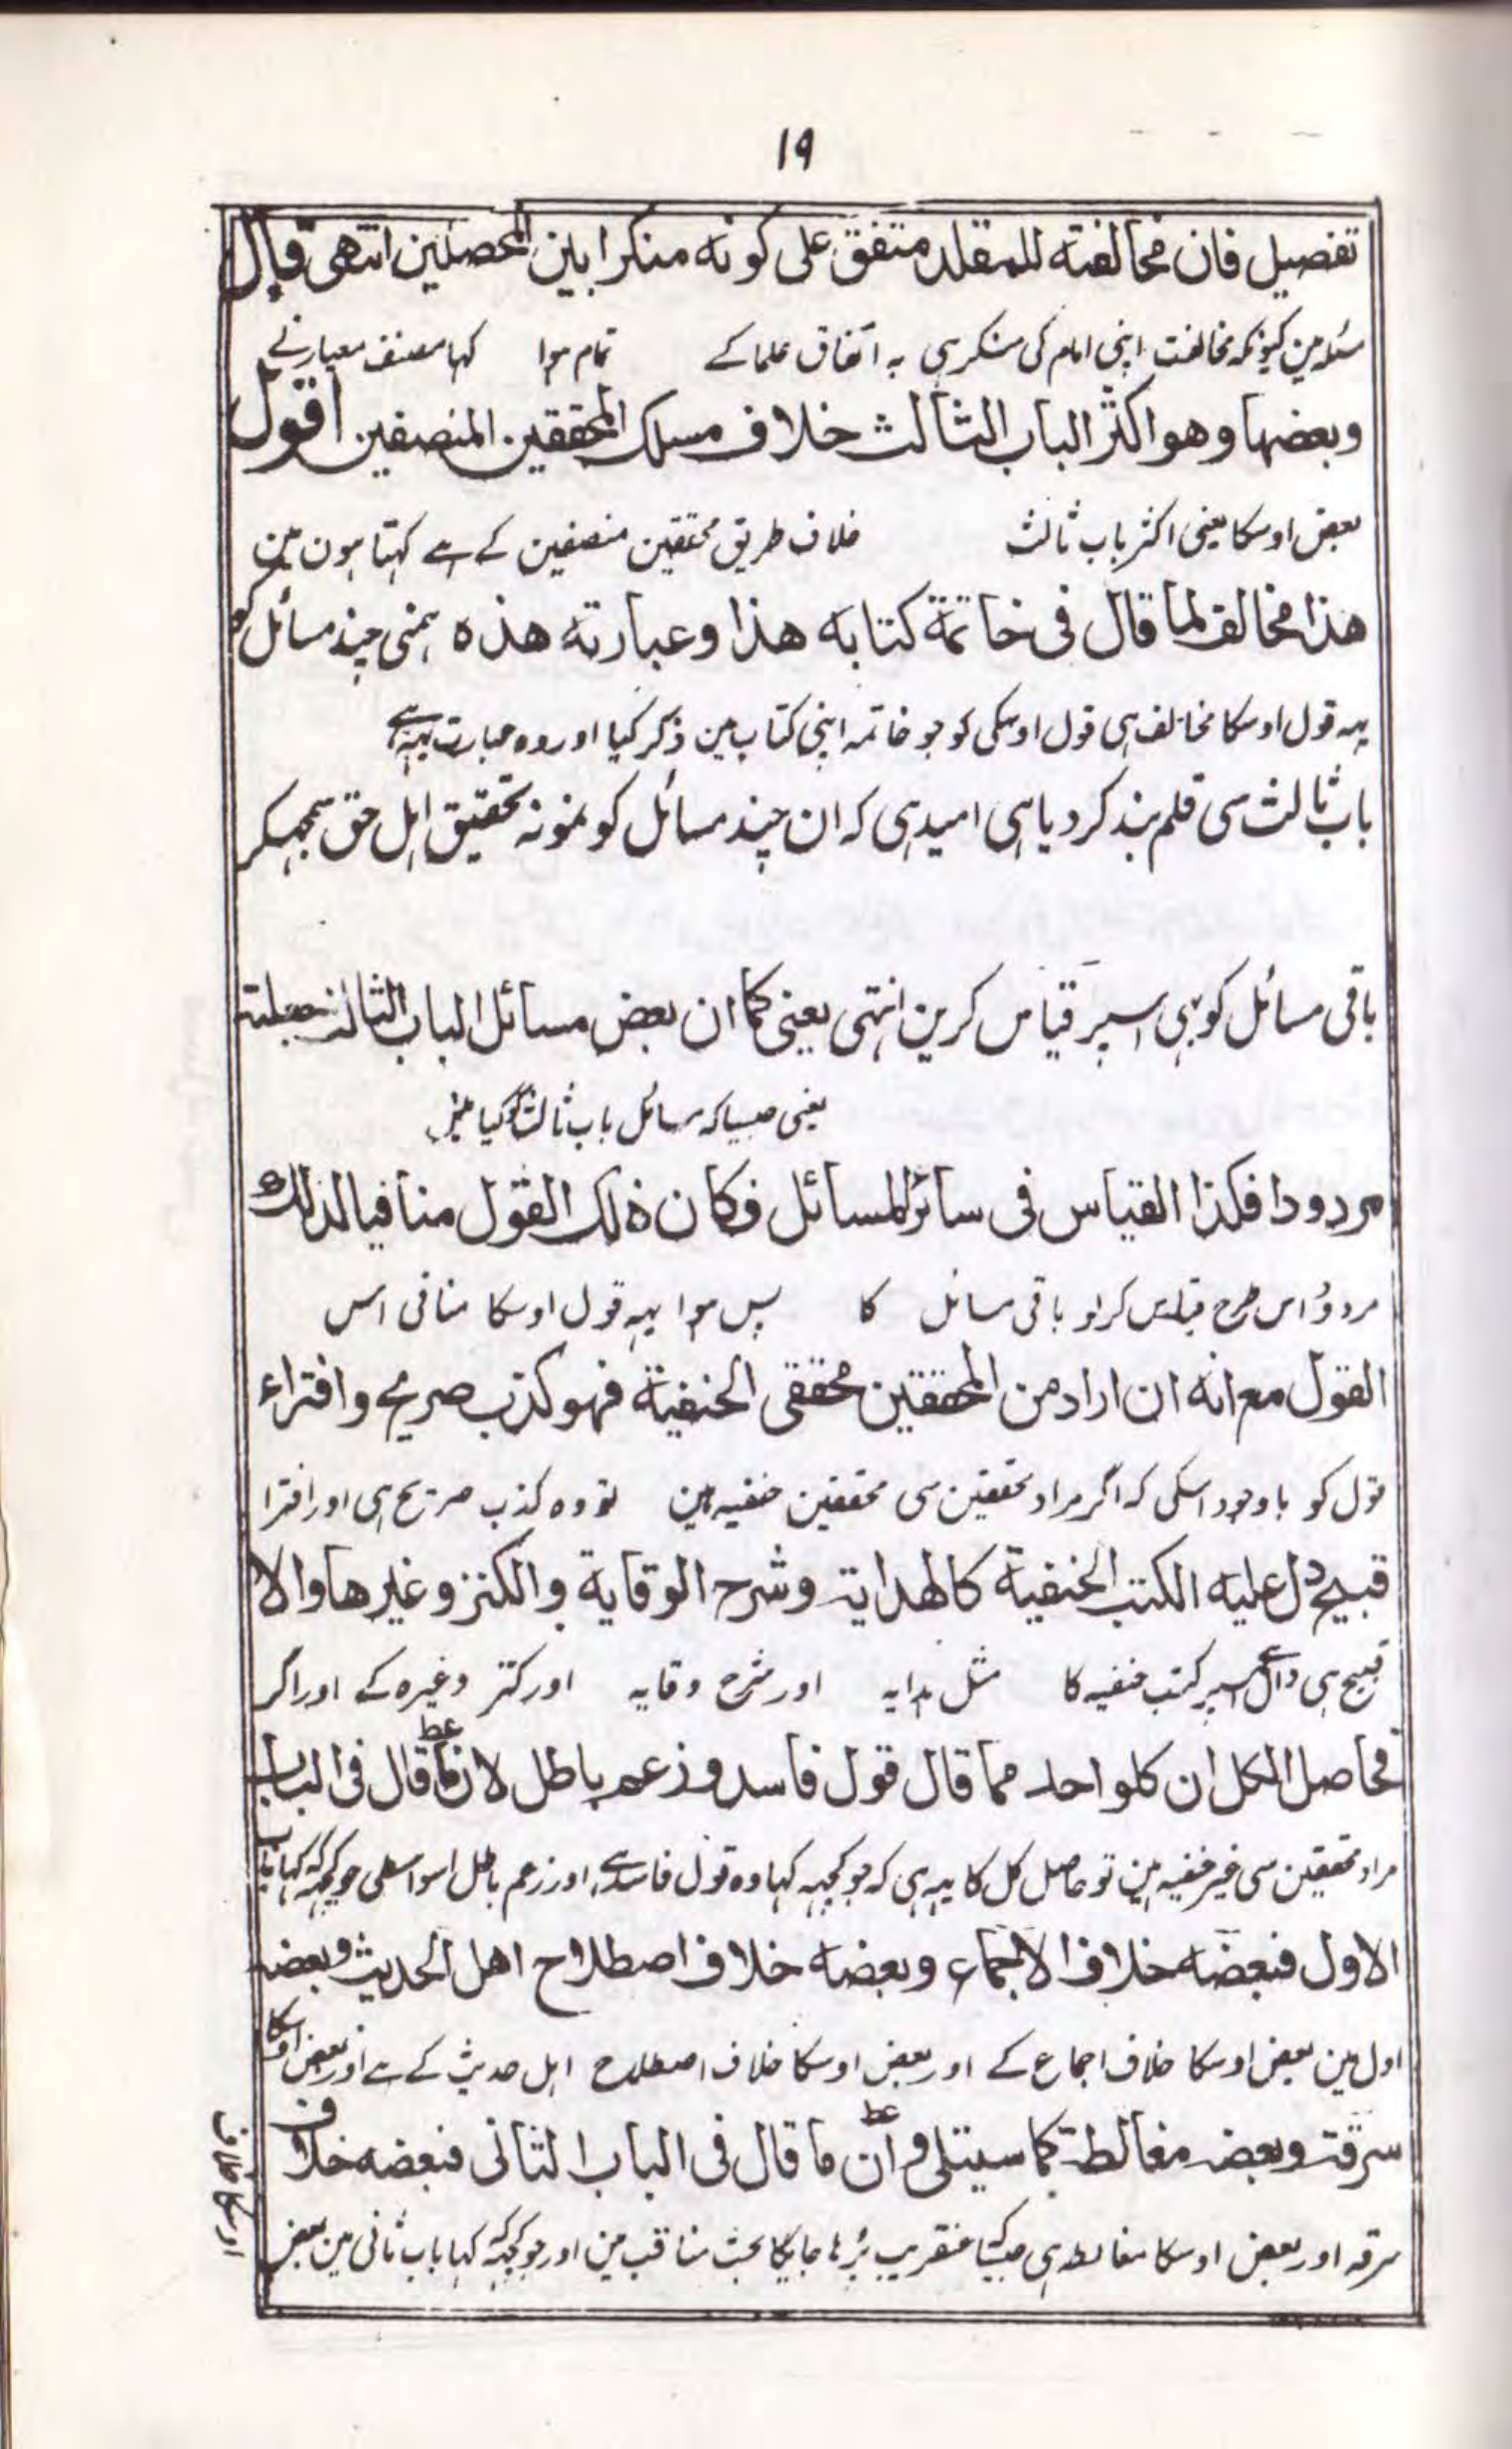 ۱۹
تفصیل فان مخالفته للمقلد متفق علی کونه منکرا بین المحصلین انتهی قال
مسئلہ مین کیونکہ مخالفت اپنی امام کی منکر ہی بہ اتفاق علما کے تمام ہوا کہا مصنف معیار نے
وبعضها وهو اکثر الباب الثالث خلاف مسلک المحققین المنصفین اقول
بعض اوسکا یعنی اکثر باب ثالث خلاف طریق محققین منصفین کے ہے کہتا ہون مین
هذا مخالف لما قال فی خاتمة کتابه هذا وعبارته هذه ہمنی چند مسائل کو
یہہ قول اوسکا مخالف ہی قول اوسکی کو جو خاتمہ اپنی کتاب مین ذکر کیا اور وہ عبارت یہہ ہے
باب ثالث سی قلم بند کر دیا ہی امید ہی کہ ان چند مسائل کو نمونہ تحقیق اہل حق سمجہکر
باقی مسائل کو بہی اسپر قیاس کرین انتہی یعنی کما ان بعض مسائل الباب الثالث جعلته
یعنی جیسا کہ مسائل باب ثالث کو کیا مینے
مردودا فکذا القیاس فی سائر المسائل فکان ذلک القول منافیا لذلک
مردود اس طرح قیاس کر لو باقی مسائل کا پس ہوا یہہ قول اوسکا منافی اس
القول مع انه ان اراد من المحققین محققی الحنفیة فهو کذب صریح وافتراء
قول کو باوجود اسکی کہ اگر مراد محققین سی محققین حنفیہ ہین تو وہ کذب صریح ہی اور افترا
قبیح دل علیه الکتب الحنفیة کالهدایة وشرح الوقایة والکنز وغیرها والا
قبیح ہی دال ہے اسپر کتب حنفیہ کا مثل ہدایہ اور شرح وقایہ اور کنز وغیرہ کے اور اگر
فحاصل الکل ان کلو احد مما قال قول فاسد وزعم باطل لان ما قال فی الباب
مراد محققین سی غیر حنفیہ ہین تو حاصل کل کا یہہ ہی کہ جو کچہہ کہا وہ قول فاسد ہے اور زعم باطل اسواسطی جو کچہہ کہ کہا باب
الاول فبعضه خلاف الاجماع وبعضه خلاف اصطلاح اهل الحدیث وبعضه
اول مین بعض اوسکا خلاف اجماع کے اور بعض اوسکا خلاف اصطلاح اہل حدیث کے ہے اور بعض اوسکا
سرقة وبعضه مغالطة کما سیتلی وان ما قال فی الباب الثانی فبعضه خلاف
سرقہ اور بعض اوسکا مغالطہ ہی جیسا عنقریب پڑہا جایگا بحث مناقب مین اور جو کچہہ کہ کہا باب ثانی مین بعض
اوسکا خلاف